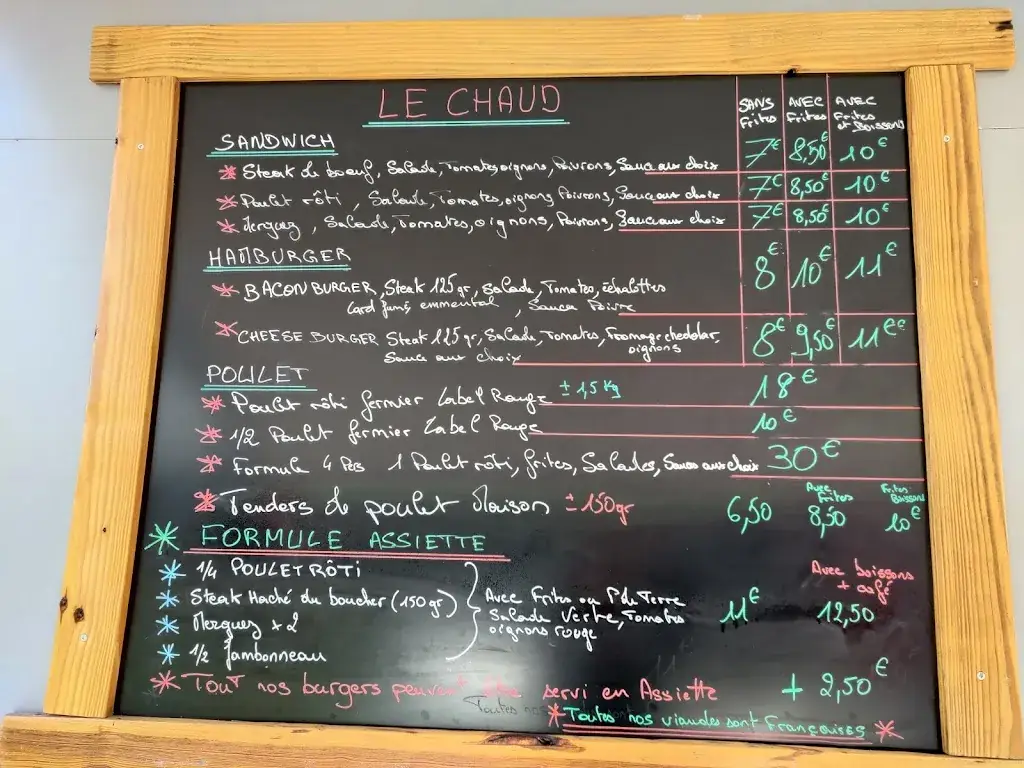 LE CHAUD
SANS Frites AVEC Frites AVEC Frites et BOISSONS
SANDWICH
* Steak de boeuf, Salade, Tomates oignons, Poivrons, Sauce aux choix 7€ 8,50€ 10€
* Poulet rôti, Salade, Tomates, oignons Poivrons, Sauce aux choix 7€ 8,50€ 10€
* Merguez, Salade, Tomates, oignons, Poivrons, Sauce aux choix 7€ 8,50€ 10€
HAMBURGER 8€ 10€ 11€
* BACON BURGER, Steak 125 gr, Salade, Tomates, échalottes
Lard fumé emmental, Sauce Poivre
* CHEESE BURGER Steak 125 gr, Salade, Tomates, Fromage cheddar, 8€ 9,50€ 11€
oignons
Sauce aux choix
POULET
* Poulet rôti fermier Label Rouge ± 1,5 Kg 18€
* 1/2 Poulet fermier Label Rouge 10€
* Formule 4 Pers 1 Poulet rôti, frites, Salades, Sauce aux choix 30€
Avec Frites Frites Boisson
* Tenders de poulet Maison ± 150gr 6,50 8,50 10€
* FORMULE ASSIETTE
Avec boissons + café
* 1/4 POULET RÔTI
* Steak Haché du boucher (150 gr) Avec Frites ou P de Terre 11€ 12,50
Salade Verte, Tomates
* Merguez x 2 oignons rouge
* 1/2 Jambonneau
* Tout nos burgers peuvent être servi en Assiette + 2,50€
* Toutes nos viandes sont Françaises *